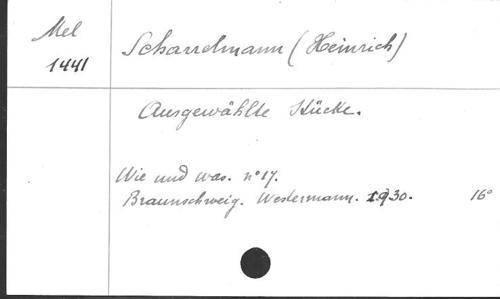 Mel
1441
Scharrelmann (Heinrich)
Ausgewählte Stücke.
Wie und was. n° 17.
Braunschweig. Westermann. 1930. 16°